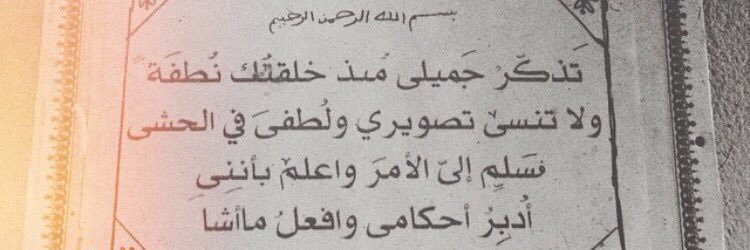 بسم الله الرحمن الرحيم
تَذكّرُ جَميلى مُنذ خلقتُك نُطفَةً
ولا تنسىَ تصويري ولُطفىَ في الحشى
فسَلمِ إلىّ الأمرَ واعلمْ بأننِىِ
أُدبِرُ أحكامى وافعلُ ماأشا